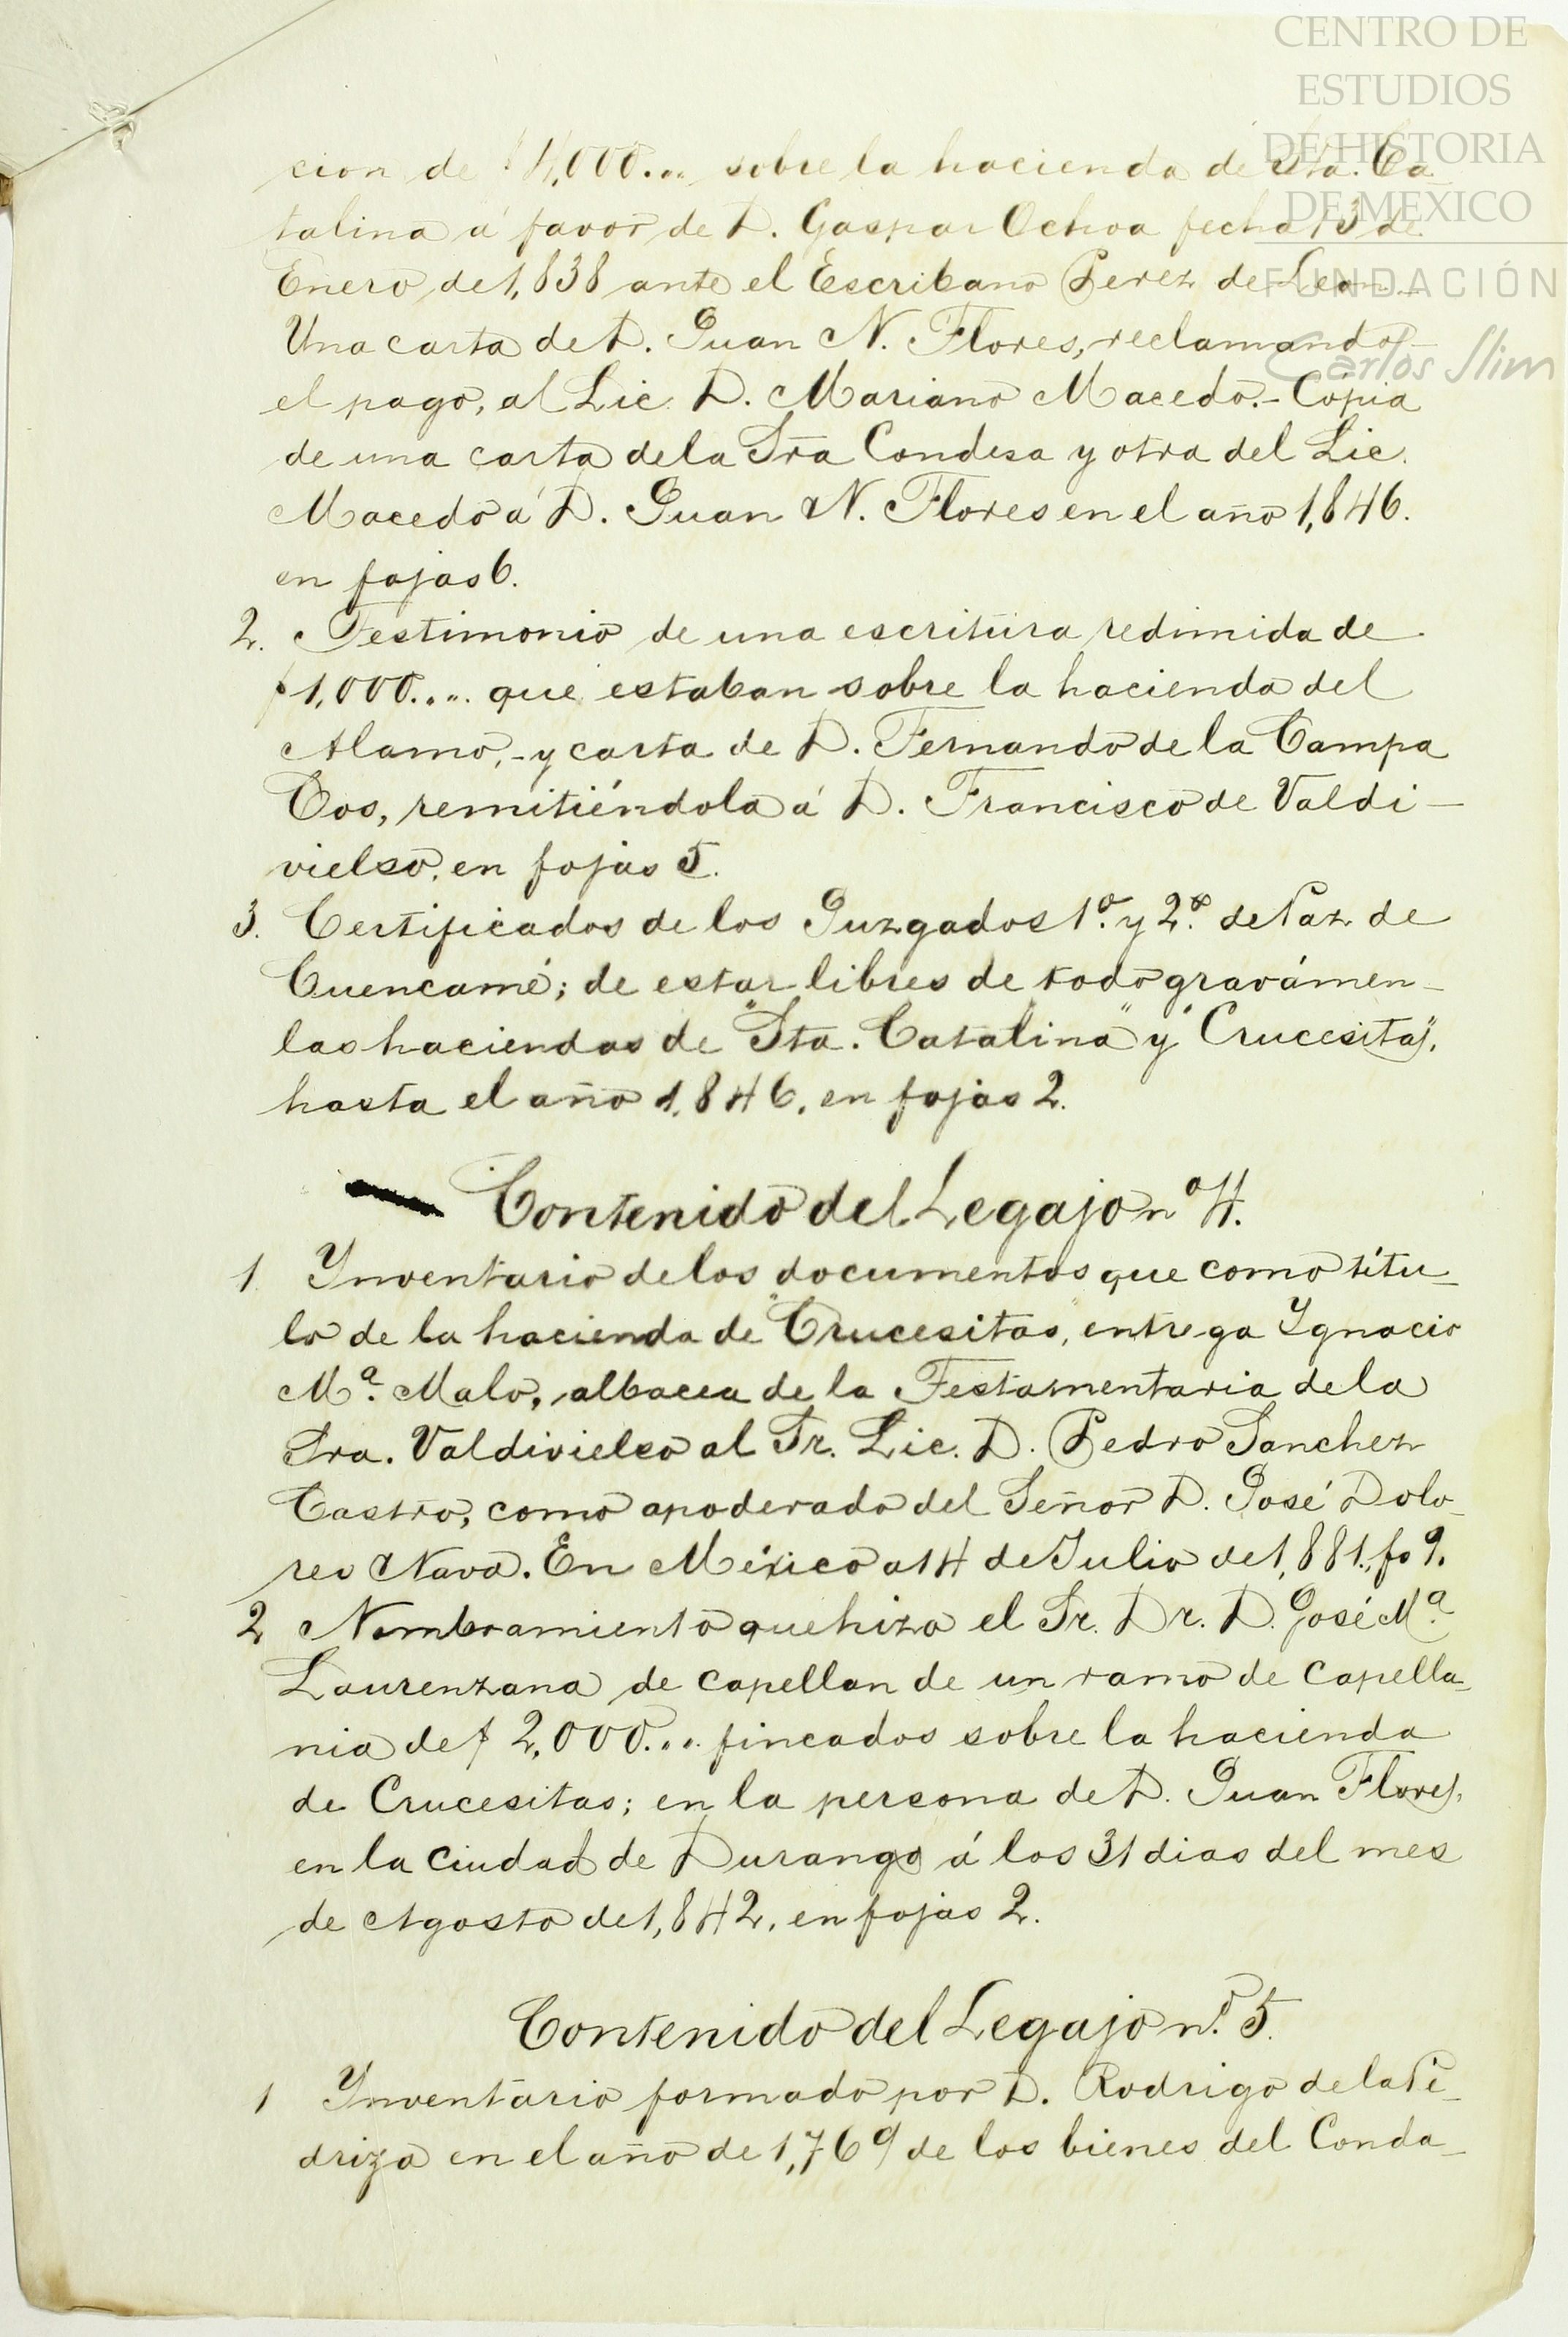 CENTRO DE
ESTUDIOS
DE HISTORIA
DE MEXICO
FUNDACIÓN
Carlos Slim
cion de $4,000... sobre la hacienda de Sta. Ca
talina á favor de D. Gaspar Ochoa fecha 13 de
Enero de 1,838 ante el Escribano Perez de Leon.
Una carta de D. Juan N. Flores, reclamando
el pago, al Lic. D. Mariano Macedo.- Cópia
de una carta de la Sra Condesa y otra del Lic.
Macedo á D. Juan N. Flores en el año 1,846.
en fojas 6.
2. Testimonio de una escritura redimida de
$1,000.... que estaban sobre la hacienda del
Alamo,- y carta de D. Fernando de la Campa
Cos, remitiéndola á D. Francisco de Valdi-
vielso, en fojas 5.
3. Certificados de los Juzgados 1º. y 2º. de Paz de
Cuencamé; de estar libres de todo gravámen-
las haciendas de "Sta. Catalina" y "Crucesitas",
hasta el año 1,846, en fojas 2.
Contenido del Legajo nº 4.
1. Inventario de los documentos que como títu-
lo de la hacienda de "Crucesitas", entrega Ygnacio
Mª. Malo, albacea de la Testamentaria de la
Sra. Valdivielso al Sr. Lic. D. Pedro Sanchez
Castro, como apoderado del Señor D. José Dolo-
res Nava. En México a 14 de Julio de 1,881., fo 9.
2 Nombramiento que hizo el Sr. Dr. D. José Mª.
Laurenzana de capellan de un ramo de capella-
nia de $ 2,000... fincados sobre la hacienda
de Crucesitas; en la persona de D. Juan Flores,
en la ciudad de Durango á los 31 dias del mes
de Agosto de 1,842, en fojas 2.
Contenido del Legajo nº. 5.
1 Inventario formado por D. Rodrigo de la Pe-
driza en el año de 1,769 de los bienes del Conda-